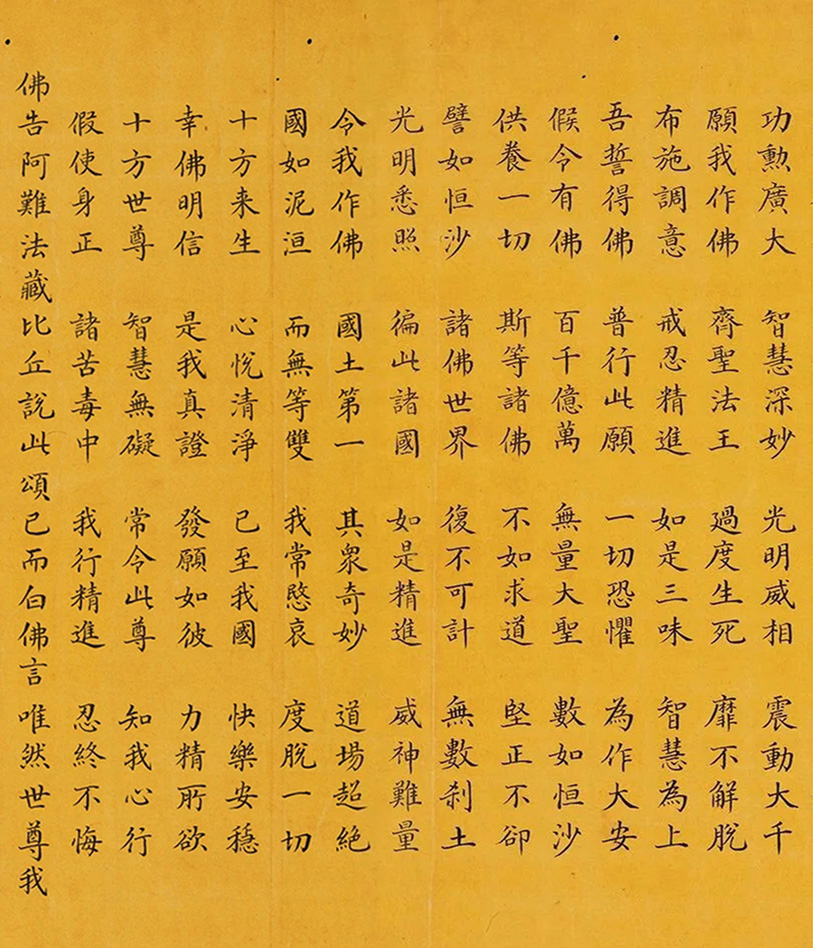 功勲廣大 智慧深妙 光明威相 震動大千
願我作佛 齊聖法王 過度生死 靡不解脫
布施調意 戒忍精進 如是三昧 智慧為上
吾誓得佛 普行此願 一切恐懼 為作大安
假令有佛 百千億萬 無量大聖 數如恒沙
供養一切 斯等諸佛 不如求道 堅正不卻
譬如恒沙 諸佛世界 復不可計 無數剎土
光明悉照 徧此諸國 如是精進 威神難量
令我作佛 國土第一 其衆奇妙 道場超絕
國如泥洹 而無等雙 我常愍哀 度脫一切
十方来生 心悅清淨 已至我國 快樂安穩
幸佛明信 是我真證 發願如彼 力精所欲
十方世尊 智慧無礙 常令此尊 知我心行
假使身正 諸苦毒中 我行精進 忍終不悔
佛告阿難法藏比丘說此頌已而白佛言唯然世尊我